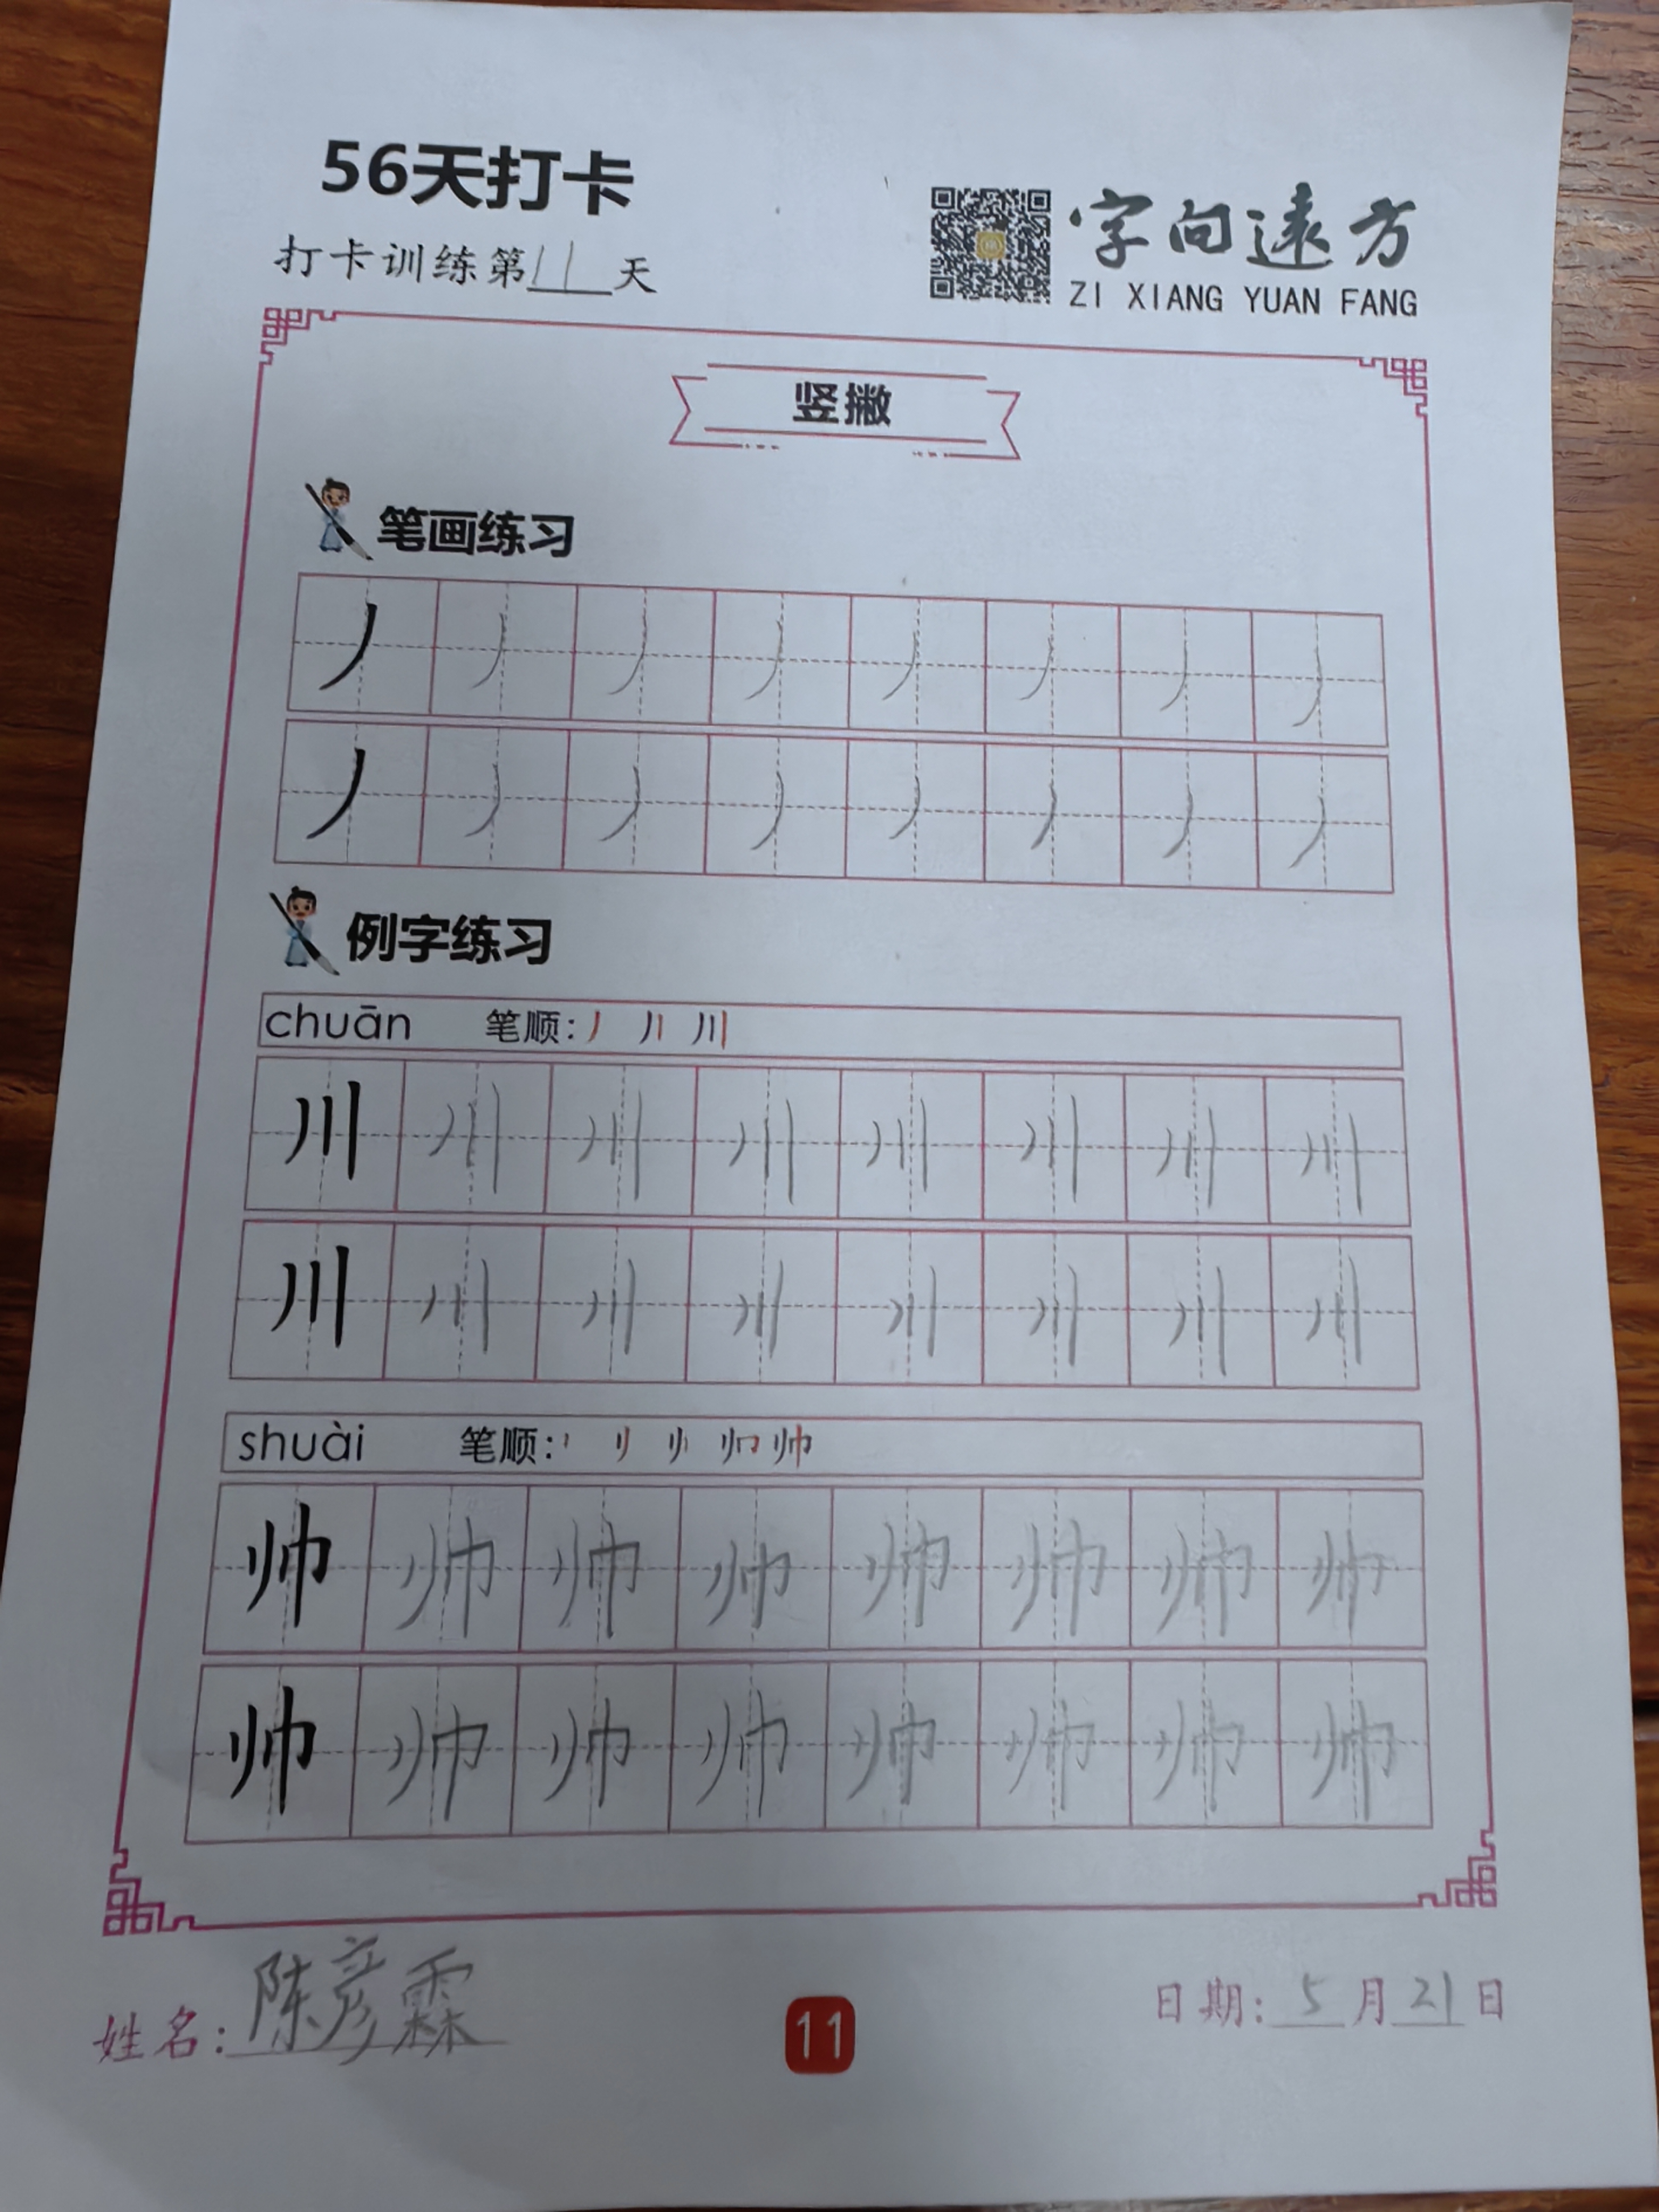 56天打卡
打卡训练第11天
字向遠方
ZI XIANG YUAN FANG
竖撇
笔画练习
丿丿丿丿丿丿丿丿
丿丿丿丿丿丿丿丿
例字练习
chuān 笔顺: 丿 丿丨 川
川川川川川川川川
川川川川川川川川
shuài 笔顺: 帅
帅帅帅帅帅帅帅帅
帅帅帅帅帅帅帅帅
姓名: 陈彦霖
11
日期: 5月21日